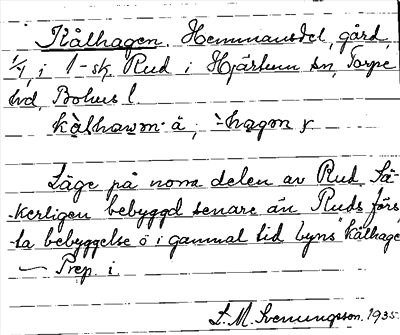 Kålhagen. Hemmansdel, gård,
1/4 i 1-sk Rud i Hjärtum sn, Torpe
hd, Bohus l.
kålhawən ä; -hagən y
Läge på norra delen av Rud. Sä-
kerligen bebyggd senare än Ruds förs-
ta bebyggelse o i gammal tid byns "kålhage"
Prep. i
L. M. Svenungsson. 1935.